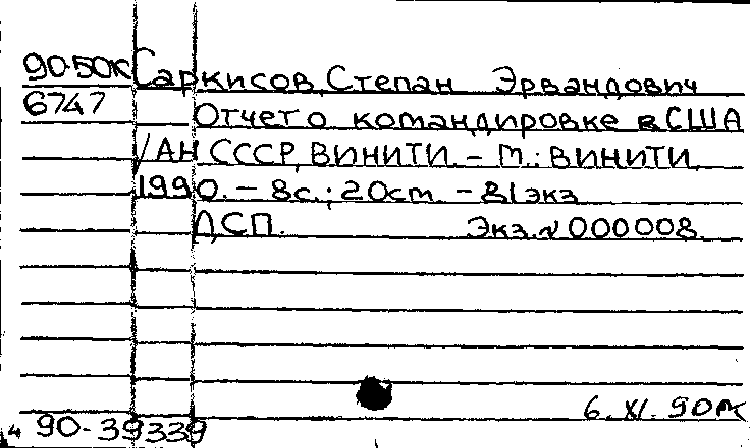 90-50к Саркисов, Степан Эрвандович
6747 Отчет о командировке в США
/АН СССР, ВИНИТИ. – М.: ВИНИТИ,
1990. – 8с.; 20см. – 81экз
ДСП. Экз.№ 000008.
6. XI. 90
90-39339